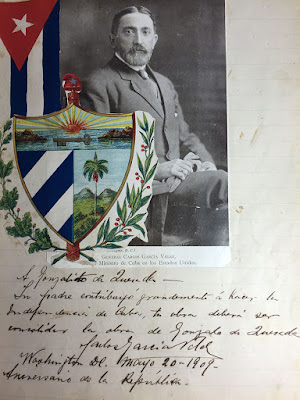 GENERAL CARLOS GARCÍA VELEZ,
Ministro de Cuba en los Estados Unidos.
A Gonzalito de Quesada—
Su padre contribuyó grandemente á hacer la
Independencia de Cuba, tu obra deberá ser
consolidar la obra de Gonzalo de Quesada
Carlos García Velez
Washington DC. Mayo 20-1909-
Aniversario de la República.